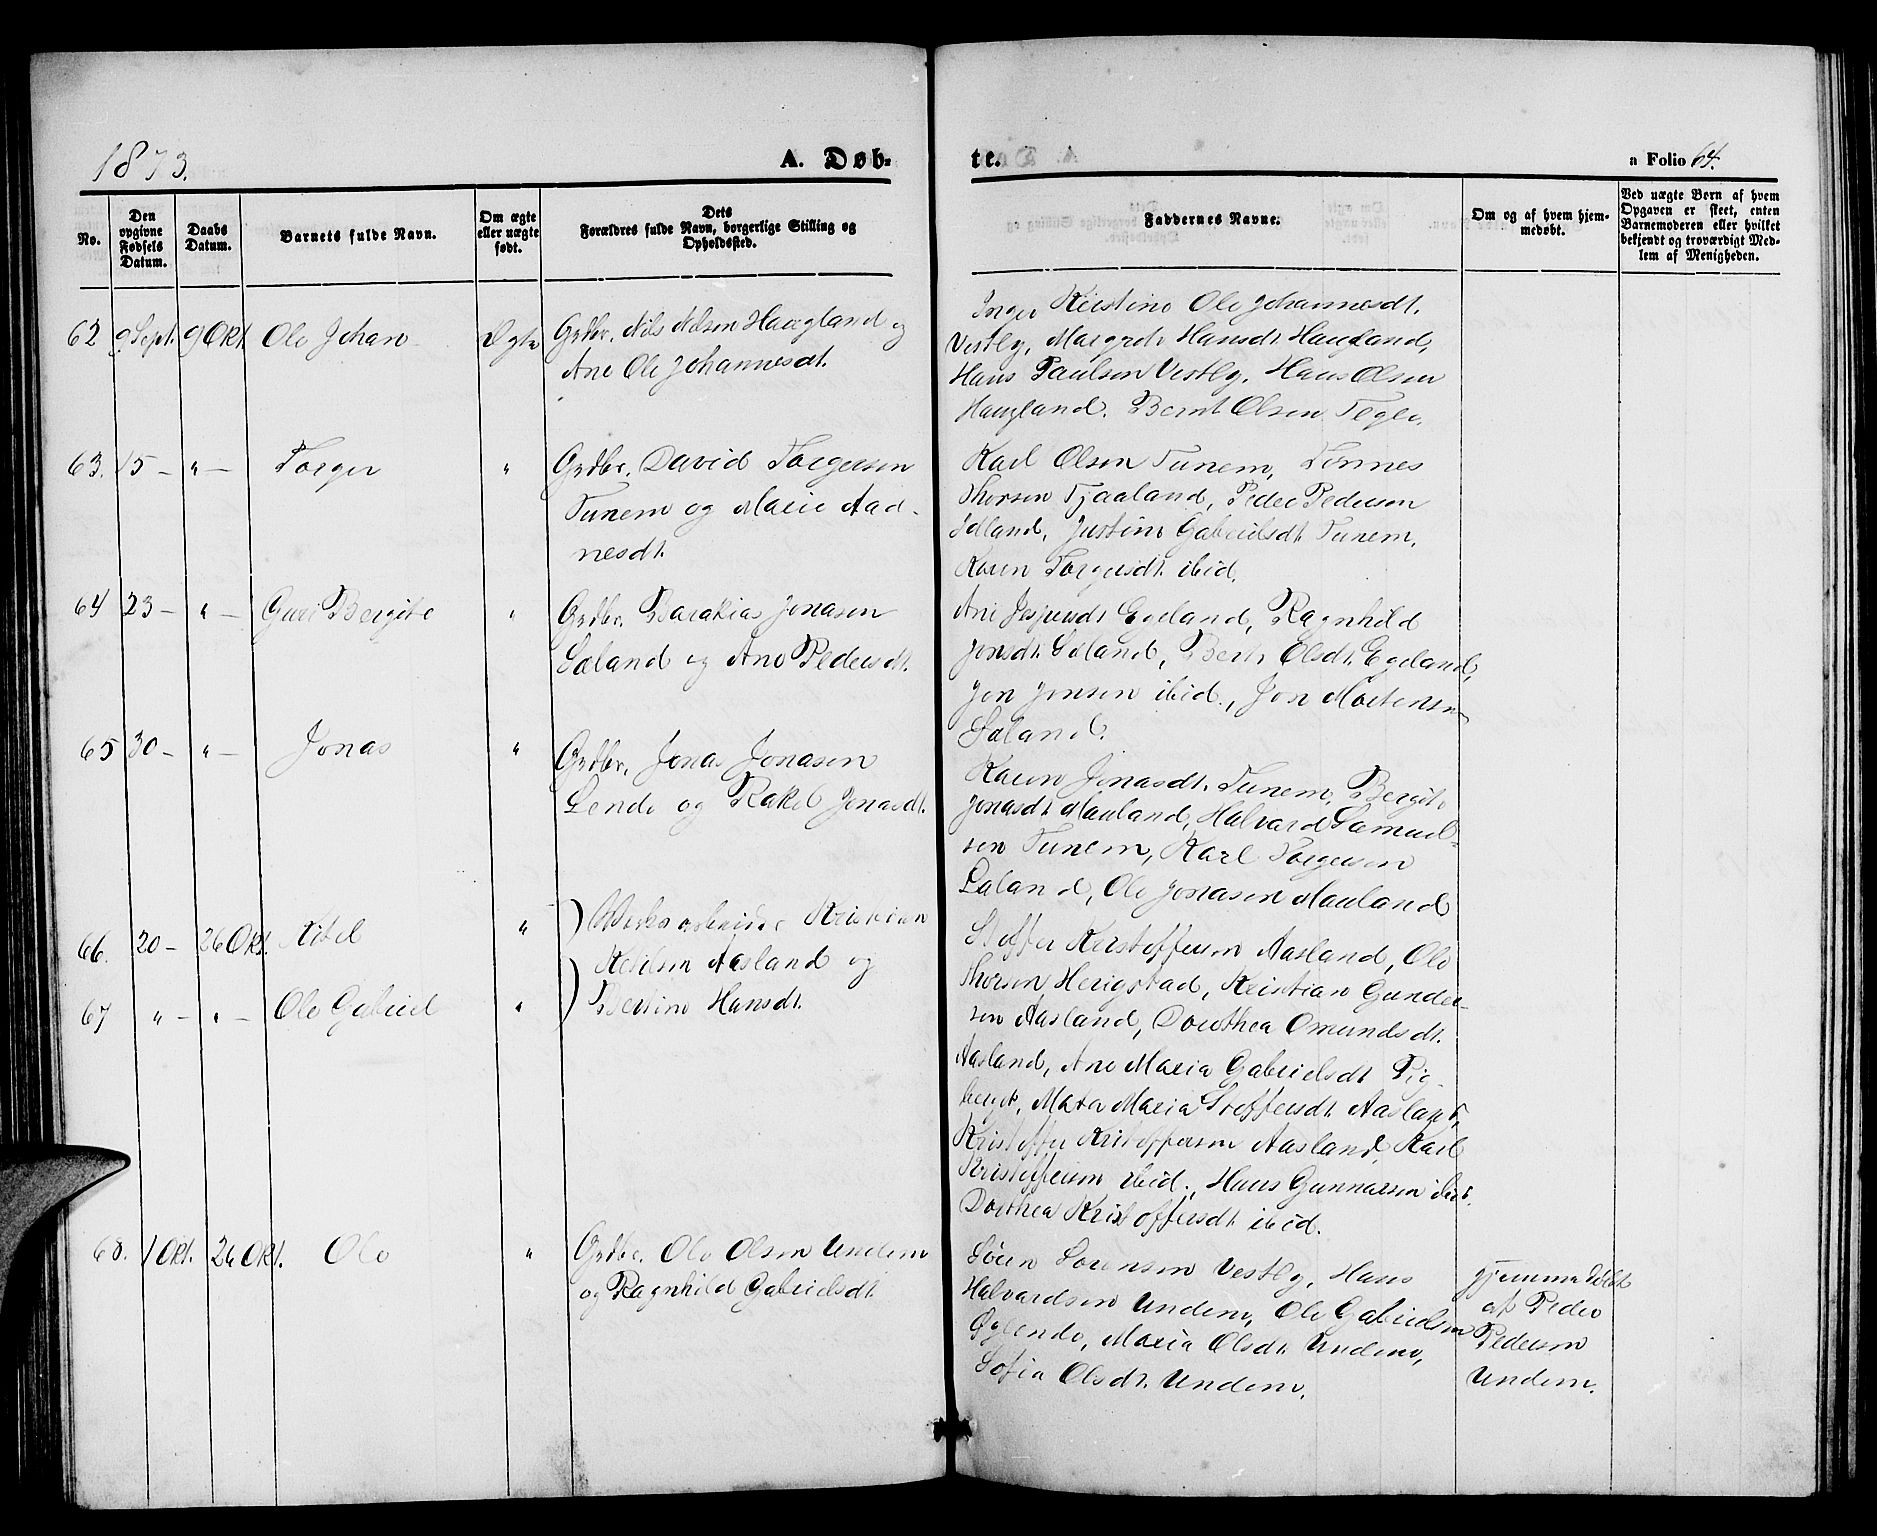 1873.
A. Døb-
te.
a Folio 64.
No.
Den
opgivne
Fødsels
Datum.
Daabs
Datum.
Barnets fulde Navn.
Om ægte
eller uægte
født.
Dets
Forældres fulde Navn, borgerlige Stilling og
Opholdssted.
Faddernes Navne.
Om og af hvem hjem-
medøbt.
Ved uægte Børn af hvem
Opgaven er skeet, enten
Barnemoderen eller hvilket
bekjendt og troværdigt Med-
lem af Menigheden.
62 9 Sept. 9 Okt. Ole Johan Ægte Grdbr. Nils Nilsen Haugland og
Ane Ole Johannesdt.
Inger Kirstine Ole Johannesdt.
Vestly, Margrete Hansdt. Haugland,
Hans Paulsen Vestly. Hans Olsen
Haugland. Bernt Olsen Tegle.
63. 15 – " – Torger " Grdbr. David Torgersen
Tunem og Marie Aad-
nesdt.
Karl Olsen Tunem, Tønnes
Thorsen Tjaaland, Peder Pedersen
Idland, Justine Gabrielsdt. Tunem,
Karen Torgersdt. ibid.
64 23 – " – Guri Bergite " Grdbr. Barakias Jonasen
Laland og Ane Pedersdt.
Ane Jespersdt. Egeland, Ragnhild
Jonsdt. Laland, Berte Olsdt. Egeland,
Jon Jonsen ibid., Jon Mortensen
Laland.
65 30 – " – Jonas " Grdbr. Jonas Jonasen
Lende og Rakel Jonasdt.
Karen Jonasdt. Tunem, Bergite
Jonasdt. Mauland, Halvard Samuel-
sen Tunem, Karl Torgersen
Laland, Ole Jonasen Mauland
66. 20 – 26 Okt. Kitel " Værksarbeider Kristian
Ketilsen Aasland og
67 " – " – Ole Gabriel " Bertine Hansdt.
Stoffer Kristoffersen Aasland, Ole
Thorsen Herigstad, Kristian Gunder-
sen Aasland, Dorthea Omundsdt.
Aasland, Ane Maria Gabrielsdt. Rig-
, Marta Maria Stoffersdt. Aasland,
Kristoffer Kristoffersen Aasland, Karl
Kristoffersen ibid., Hans Gunnarsen ibid.
Dorthea Kristoffersdt. ibid.
68. 1 Okt. 26 Okt. Ole " Grdbr. Ole Olsen Undem
og Ragnhild Gabrielsdt.
Søren Sørensen Vestly, Hans
Halvardsen Undem, Ole Gabrielsen
Øglende, Maria Olsdt. Undem,
Sofia Olsdt. Undem.
gjemmedøbt
af Peder
Pedersen
Undem.